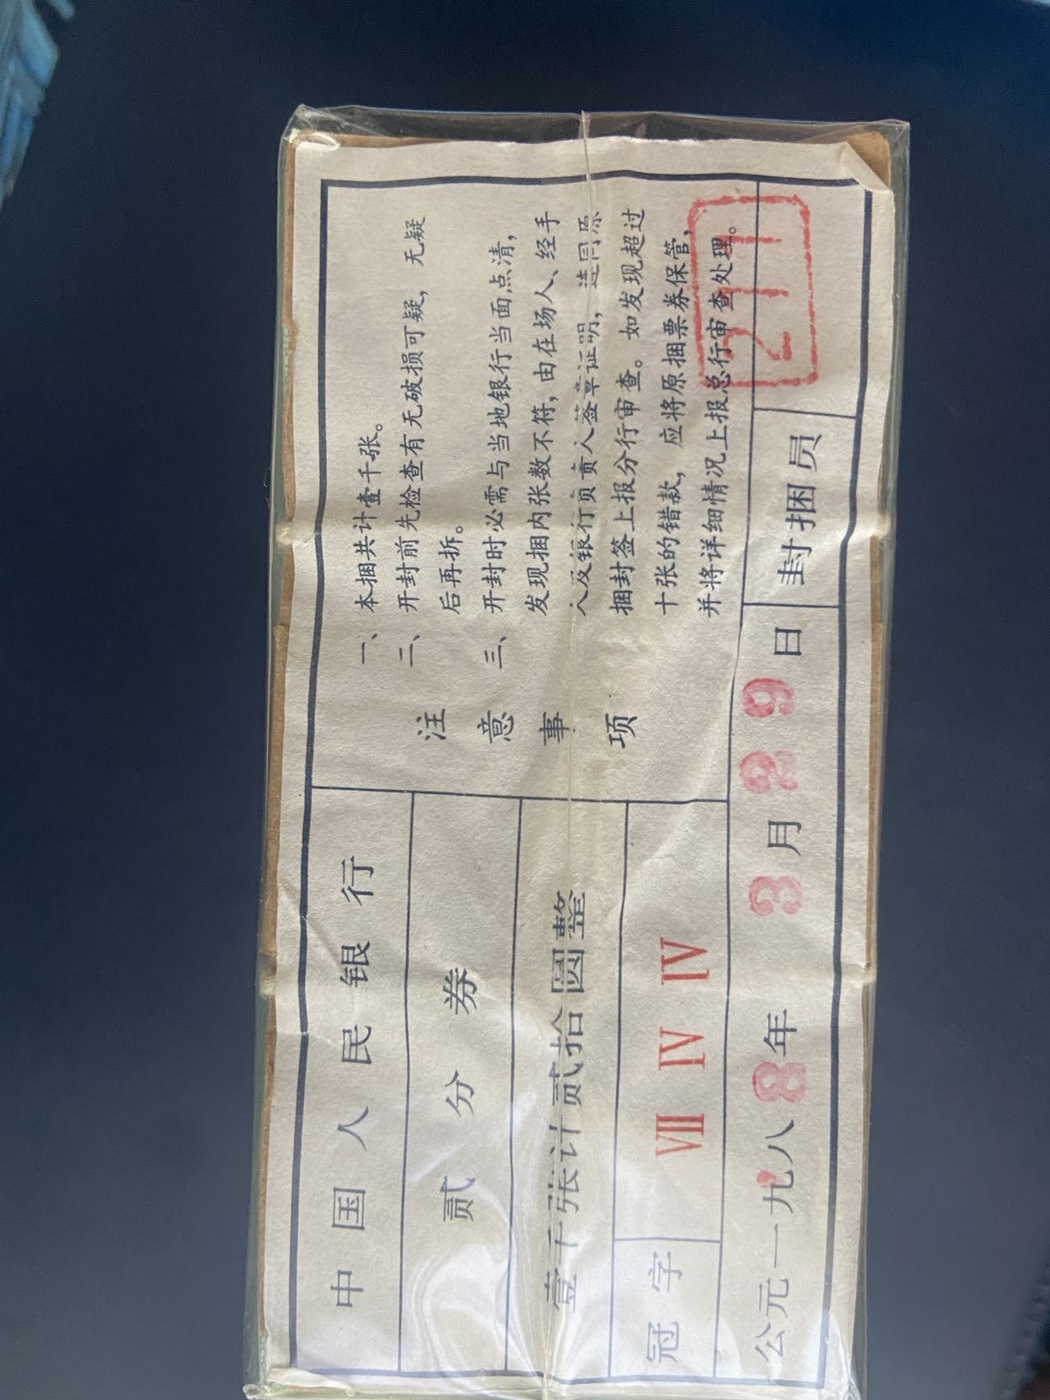 中国人民银行
贰分券
壹千张计贰拾圆整
冠字 VII IV IV
注意事项
一、本捆共计壹千张。
二、开封前先检查有无破损可疑，无疑
后再拆。
三、开封时必需与当地银行当面点清，
发现捆内张数不符，由在场人、经手
人及银行负责人签章证明，连同原
捆封签上报分行审查。如发现超过
十张的错款，应将原捆票券保管，
并将详细情况上报总行审查处理。
公元一九八8年3月29日
封捆员
211